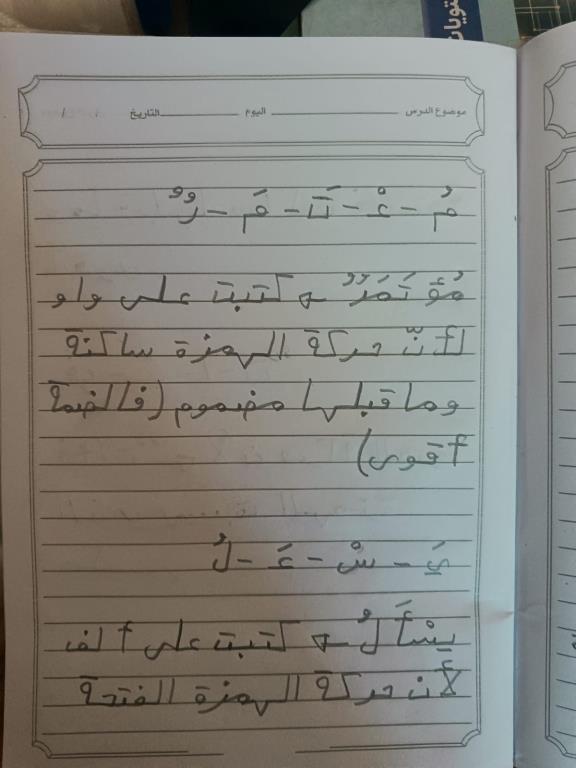 تويات
موضوع الدرس اليوم التاريخ / /
مُ - ءْ - تَ - مَ - رٌ
مُؤْتَمَرٌ → كتبت على واو
لأنّ حركة الهمزة ساكنة
وما قبلها مضموم (فالضمة
أقوى)
يَ - سْ - ءَ - لُ
يَسْأَلُ → كتبت على ألف
لأن حركة الهمزة الفتحة